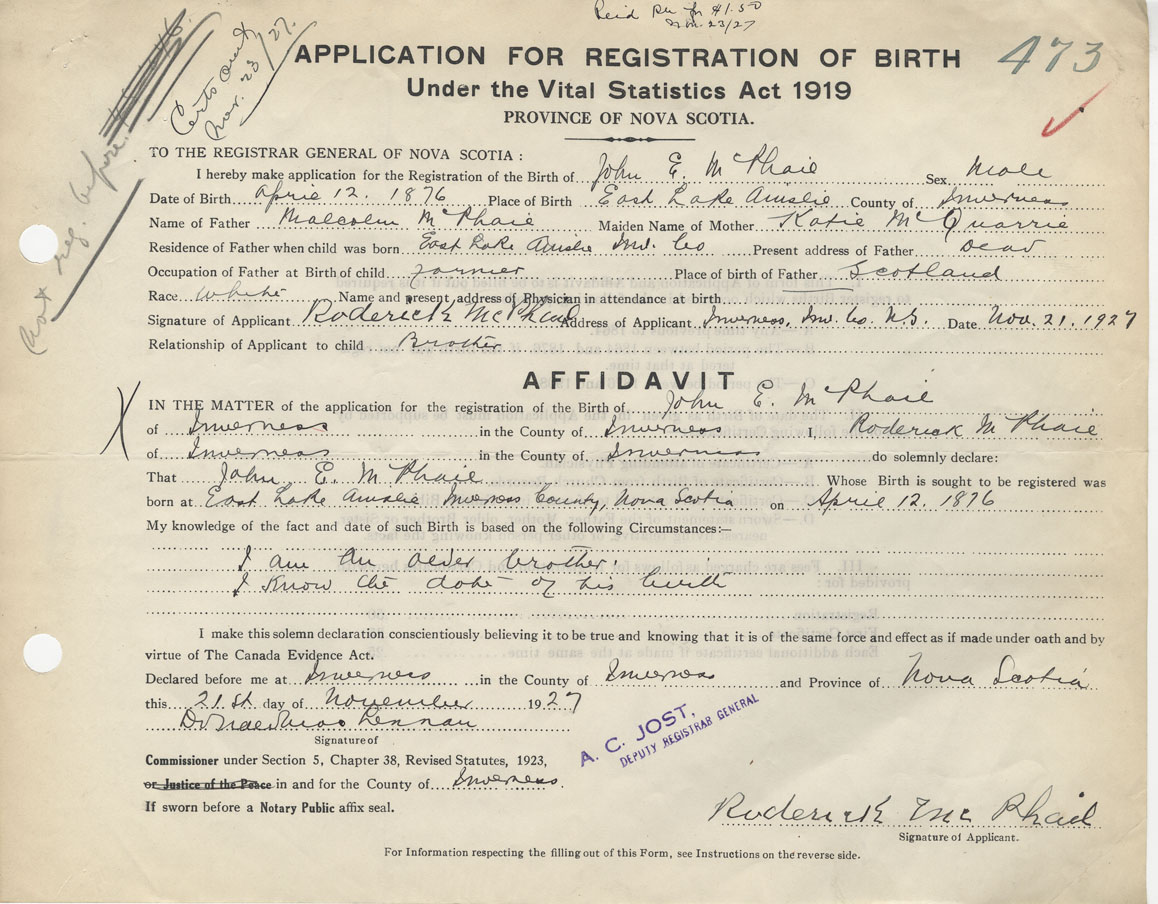 Reid Nov. 23/27 $1.50
Certs Count Nov. 23/27.
Not reg before.
473
APPLICATION FOR REGISTRATION OF BIRTH
Under the Vital Statistics Act 1919
PROVINCE OF NOVA SCOTIA.
TO THE REGISTRAR GENERAL OF NOVA SCOTIA :
I hereby make application for the Registration of the Birth of John E. McPhail Sex Male
Date of Birth April 12. 1876 Place of Birth East Lake Ainslie County of Inverness
Name of Father Malcolm McPhail Maiden Name of Mother Katie McQuarrie
Residence of Father when child was born East Lake Ainslie Inv. Co Present address of Father Dead
Occupation of Father at Birth of child Farmer Place of birth of Father Scotland
Race White Name and present address of Physician in attendance at birth
Signature of Applicant Roderick McPhail Address of Applicant Inverness, Inv. Co. N.S. Date Nov. 21. 1927
Relationship of Applicant to child Brother
AFFIDAVIT
IN THE MATTER of the application for the registration of the Birth of John E. McPhail
of Inverness in the County of Inverness I, Roderick McPhail
of Inverness in the County of Inverness do solemnly declare:
That John E. McPhail Whose Birth is sought to be registered was
born at East Lake Ainslie Inverness County, Nova Scotia on April 12. 1876
My knowledge of the fact and date of such Birth is based on the following Circumstances:—
I am an older brother.
I know the date of his birth
I make this solemn declaration conscientiously believing it to be true and knowing that it is of the same force and effect as if made under oath and by
virtue of The Canada Evidence Act.
Declared before me at Inverness in the County of Inverness and Province of Nova Scotia
this 21st. day of November 1927
Donald MacLennan
Signature of
A. C. JOST,
DEPUTY REGISTRAR GENERAL
Commissioner under Section 5, Chapter 38, Revised Statutes, 1923,
or Justice of the Peace in and for the County of Inverness.
If sworn before a Notary Public affix seal.
Roderick McPhail
Signature of Applicant.
For Information respecting the filling out of this Form, see Instructions on the reverse side.